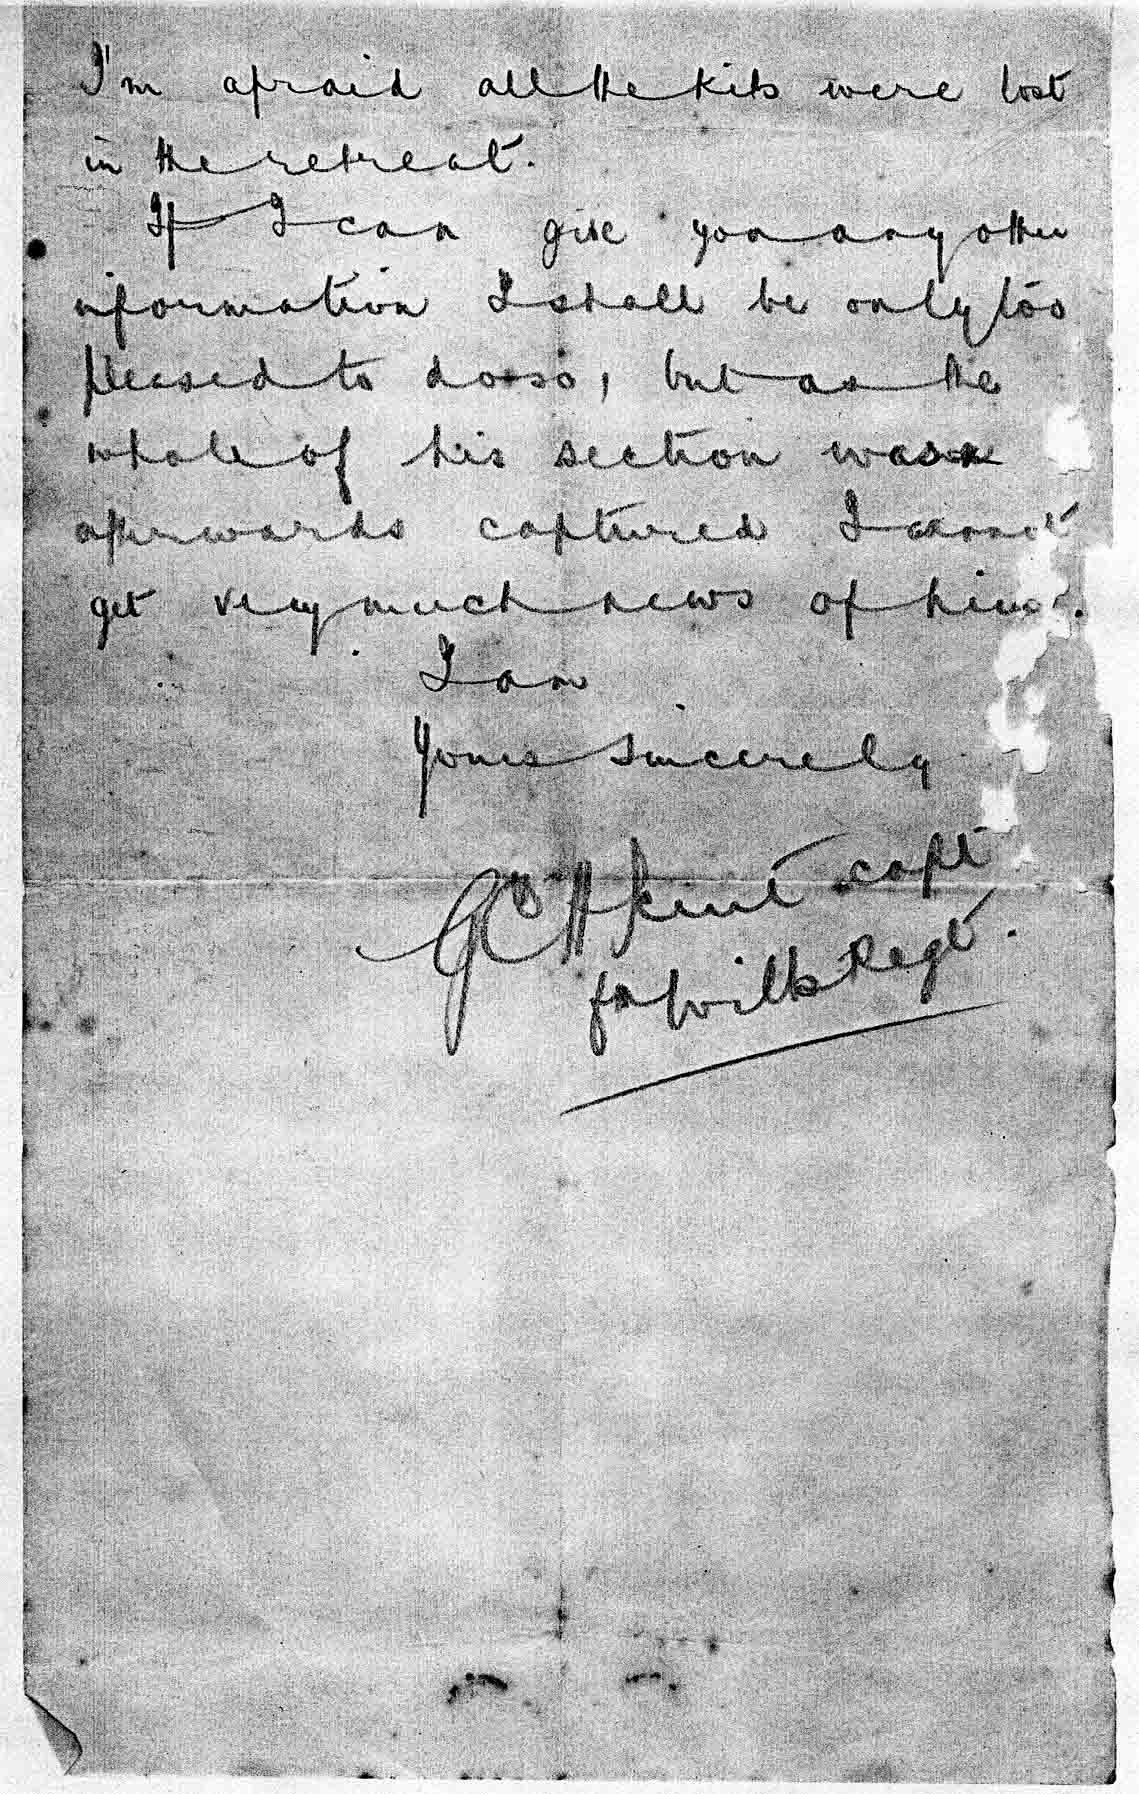 I'm afraid all the kits were lost
in the retreat.
If I can give you any other
information I shall be only too
pleased to do so, but as the
whole of his section was
afterwards captured I cannot
get very much news of him.
I am
Yours sincerely
G C H Kent Capt
for Wilts Regt.